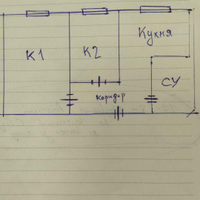 Кухня
К1
К2
СУ
коридор